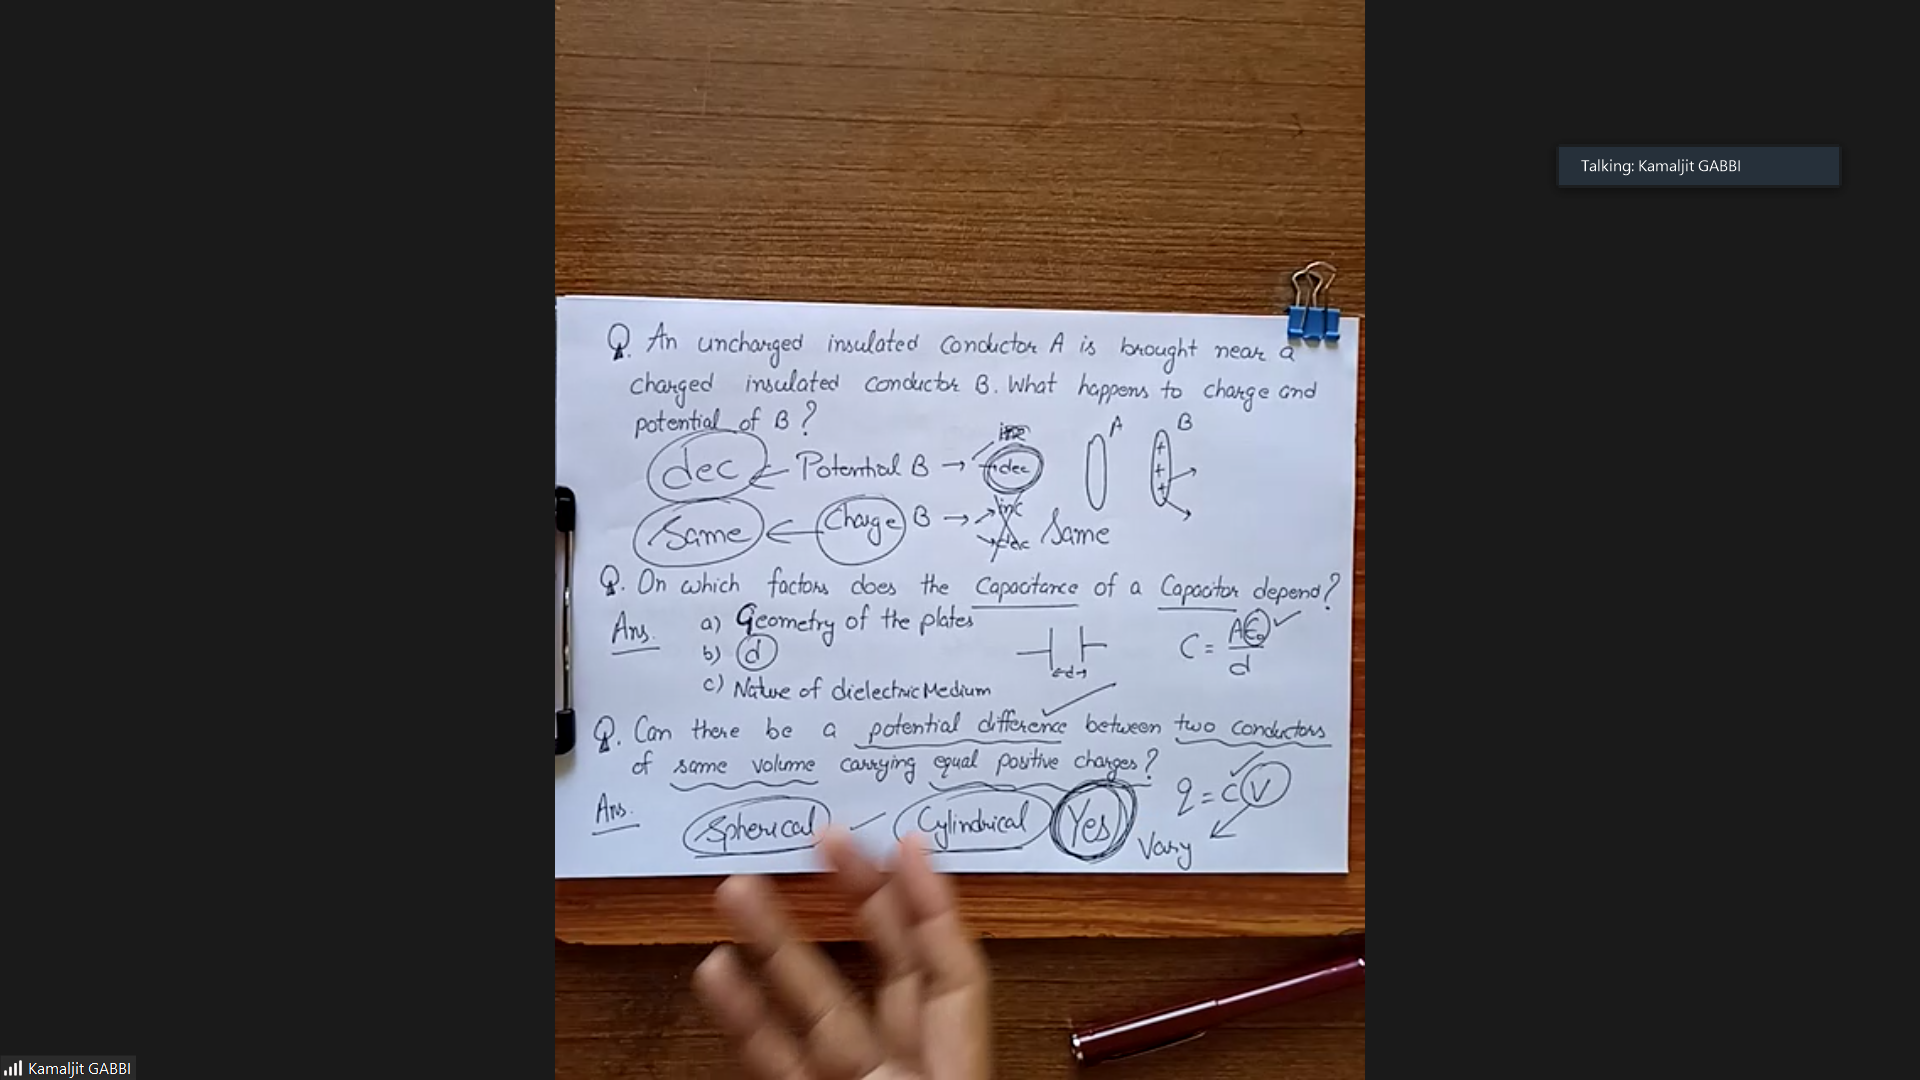 Talking: Kamaljit GABBI
Q. An uncharged insulated conductor A is brought near a
charged insulated conductor B. What happens to charge and
potential of B?
A B
dec ← Potential B → dec
+ + +
Same ← Charge B → inc dec Same
Q. On which factors does the Capacitance of a Capacitor depend?
Ans. a) Geometry of the plates
b) d
c) Nature of dielectric Medium
d
C = Aε₀/d
Q. Can there be a potential difference between two conductors
of same volume carrying equal positive charges?
q = CV
Ans. Spherical Cylindrical Yes
Vary
Kamaljit GABBI